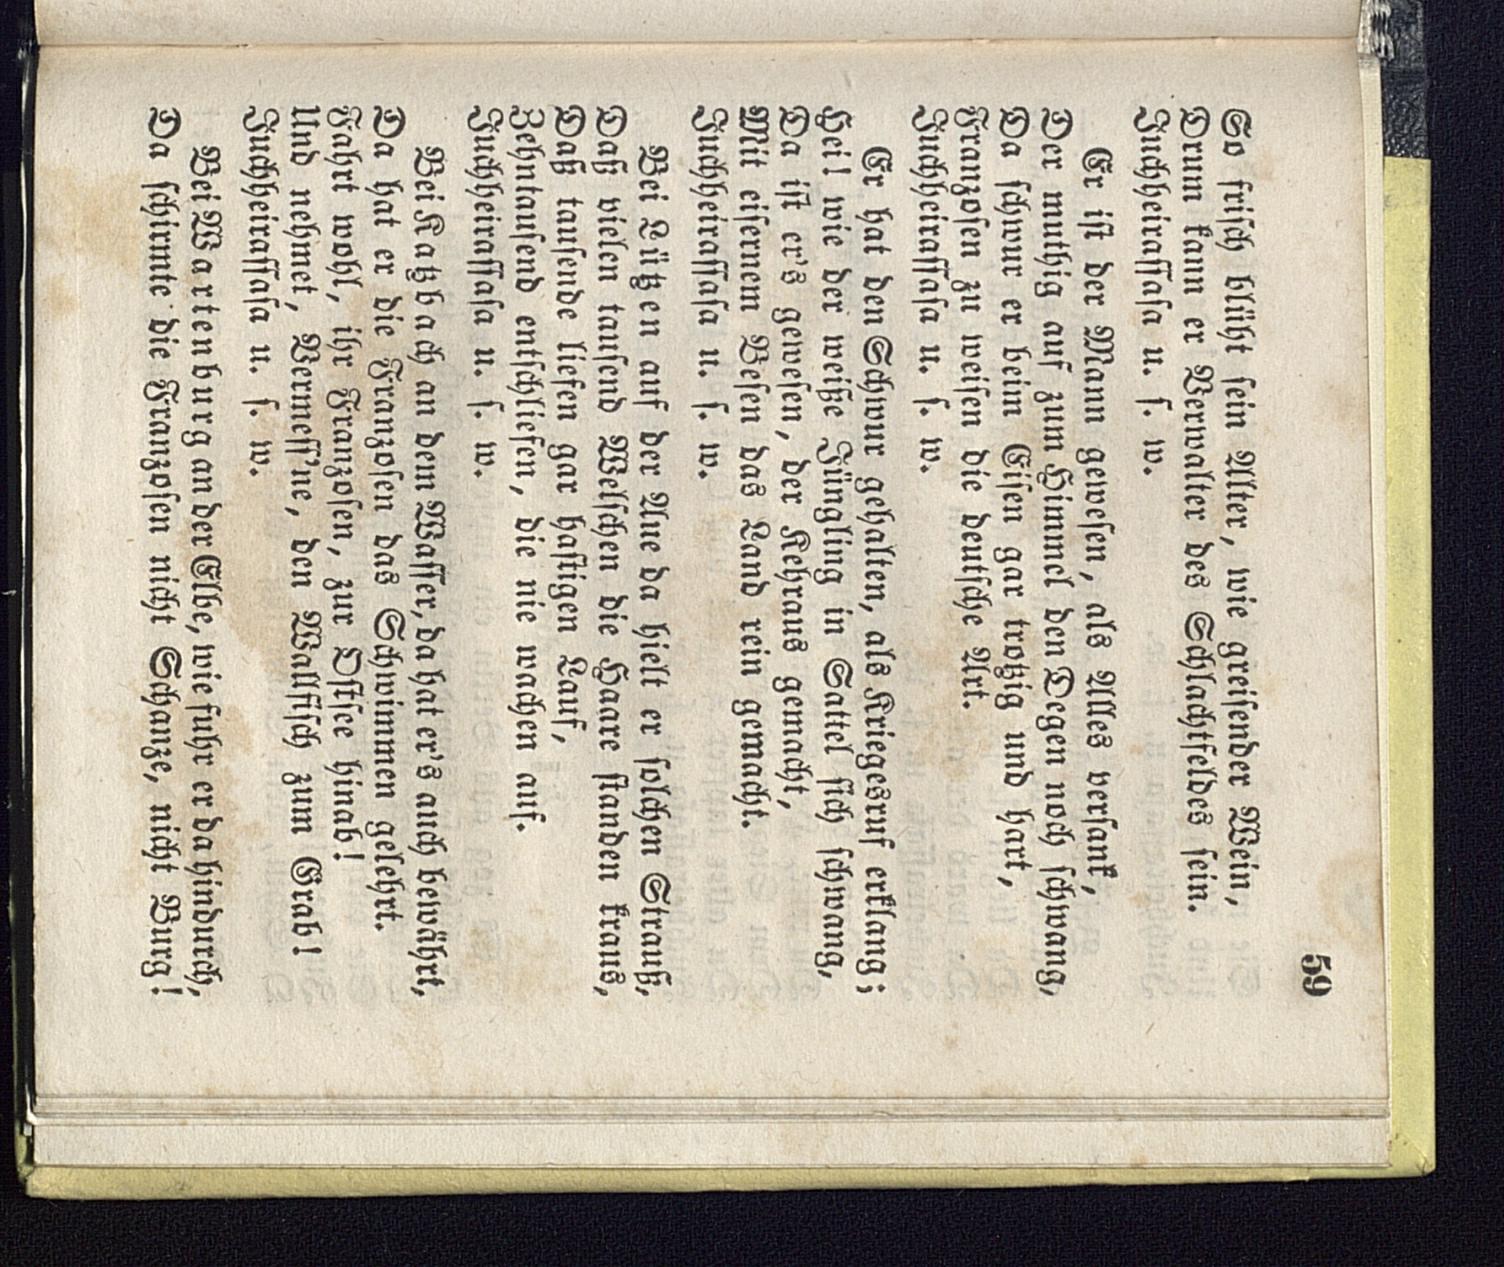 59
So frisch blüht sein Alter, wie greisender Wein,
Drum kann er Verwalter des Schlachtfeldes sein.
Juchheirassasa u. s. w.
Er ist der Mann gewesen, als Alles versank,
Der muthig auf zum Himmel den Degen noch schwang,
Da schwur er beim Eisen gar trotzig und hart,
Franzosen zu weisen die deutsche Art.
Juchheirassasa u. s. w.
Er hat den Schwur gehalten, als Kriegesruf erklang;
Hei! wie der weiße Jüngling in Sattel sich schwang,
Da ist er's gewesen, der Kehraus gemacht,
Mit eisernem Besen das Land rein gemacht.
Juchheirassasa u. s. w.
Bei Lützen auf der Aue da hielt er solchen Strauß,
Daß vielen tausend Welschen die Haare standen kraus,
Daß tausende liefen gar hastigen Lauf,
Zehntausend entschliefen, die nie wachen auf.
Juchheirassasa u. s. w.
Bei Katzbach an dem Wasser, da hat er's auch bewährt,
Da hat er die Franzosen das Schwimmen gelehrt.
Fahrt wohl, ihr Franzosen, zur Ostsee hinab!
Und nehmet, Vermess'ne, den Wallfisch zum Grab!
Juchheirassasa u. s. w.
Bei Wartenburg an der Elbe, wie fuhr er da hindurch,
Da schirmte die Franzosen nicht Schanze, nicht Burg!